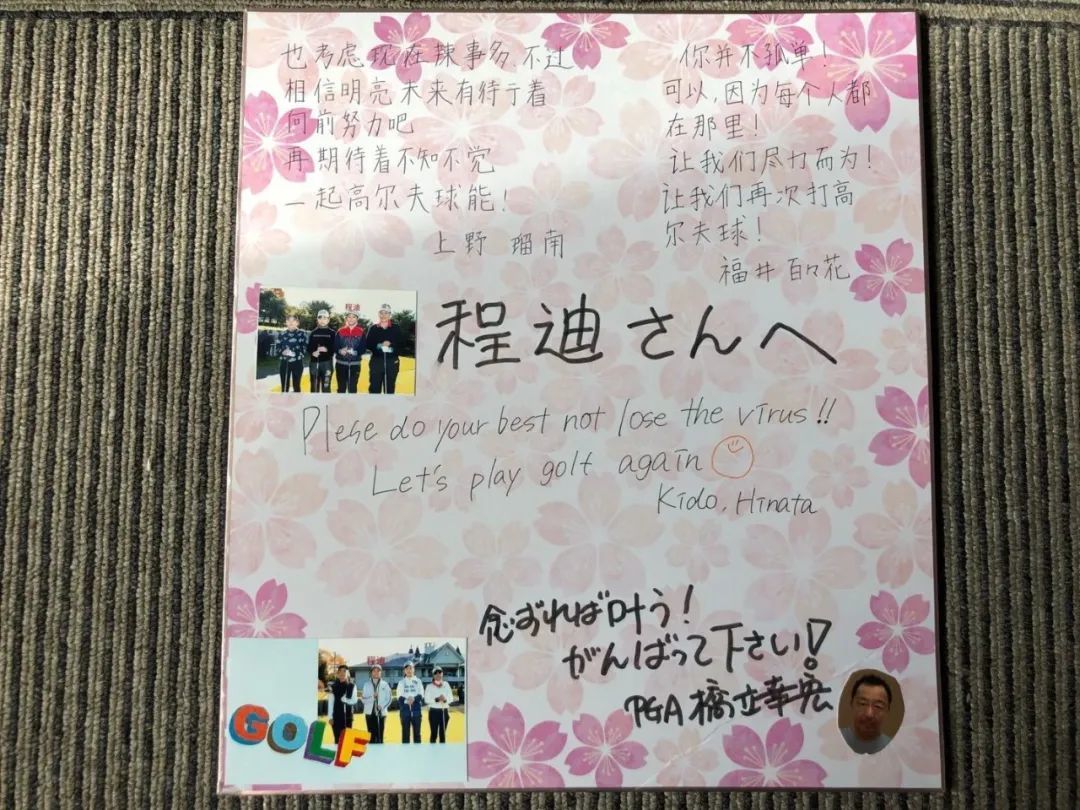 也考虑现在辣事多 不过
相信明亮未来有待于着
向前努力吧
再期待着不知不觉
一起高尔夫球能!
上野 瑠南
你并不孤单!
可以,因为每个人都
在那里!
让我们尽力而为!
让我们再次打高
尔夫球!
福井 百々花
程迪
程迪さんへ
Plese do your best not lose the virus!!
Let's play golt again
Kido, Hinata
念ずれば叶う!
がんばって下さい!
PGA 橋立幸宏
GOLF